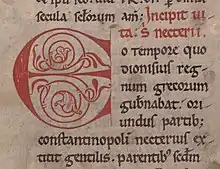 secula sclorum am. Incipit ui
ta. S. necterii
EO tempore quo
dionisius reg
num grecorum
gubnabat. ori
undus partib;
constantinopoli necterius ex
titit gentilis. parentibus scdm